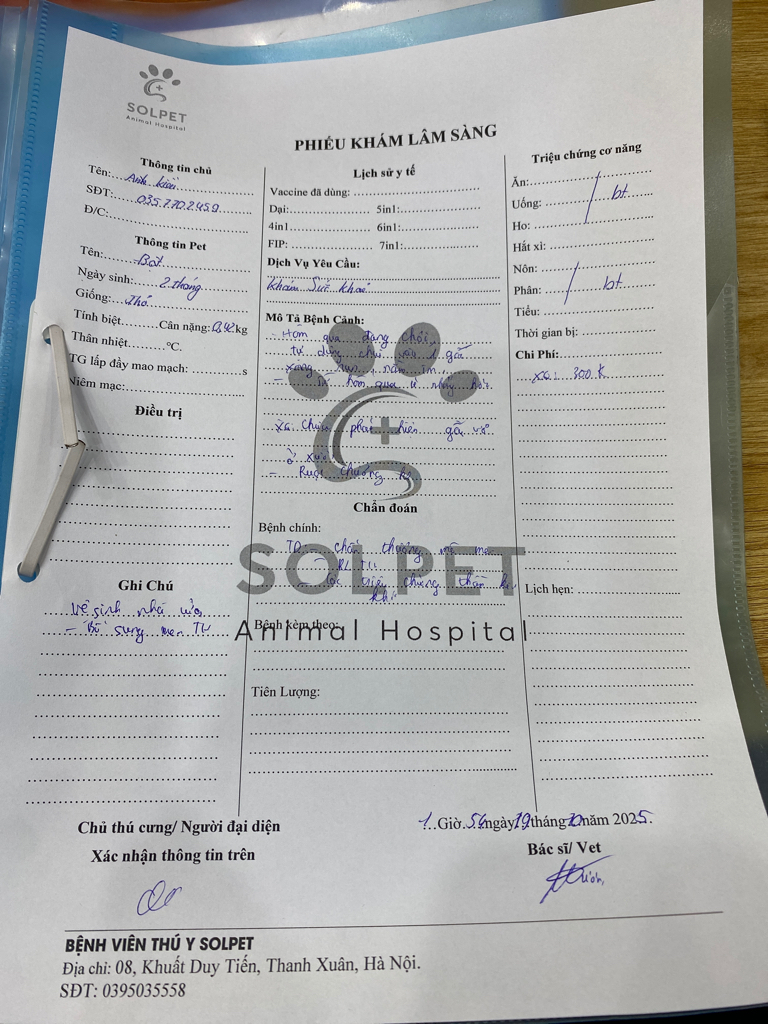 SOLPET
Animal Hospital
PHIẾU KHÁM LÂM SÀNG
Thông tin chủ
Tên: Anh
SĐT: 035.770.2459
Đ/C:
Thông tin Pet
Tên: Bột
Ngày sinh: 2 tháng
Giống: Thỏ
Tính biệt Cân nặng: 0,42 kg
Thân nhiệt °C.
TG lấp đầy mao mạch: s
Niêm mạc:
Điều trị
Ghi Chú
Vệ sinh nhà cửa
- Bổ sung men TH
Lịch sử y tế
Vaccine đã dùng:
Dại: 5in1:
4in1 6in1:
FIP: 7in1:
Dịch Vụ Yêu Cầu:
khám sức khoẻ
Mô Tả Bệnh Cảnh:
- Hôm qua đang chơi,
tự dựng
xong nằm im,
- hôm qua
XQ chưa phát hiện gãy vỡ
ở xương
- Ruột chướng
Chẩn đoán
Bệnh chính:
TD chấn thương
- RL TH
- các triệu chứng thần k
SOLPET
Animal Hospital
Bệnh kèm theo:
Tiên Lượng:
Triệu chứng cơ năng
Ăn:
Uống: bt
Ho:
Hắt xì:
Nôn:
Phân: bt
Tiểu:
Thời gian bị:
Chi Phí:
XQ: 300k
Lịch hẹn:
Chủ thú cưng/ Người đại diện
Xác nhận thông tin trên
1 Giờ 54 ngày 19 tháng 10 năm 2025.
Bác sĩ/ Vet
BỆNH VIÊN THÚ Y SOLPET
Địa chỉ: 08, Khuất Duy Tiến, Thanh Xuân, Hà Nội.
SĐT: 0395035558